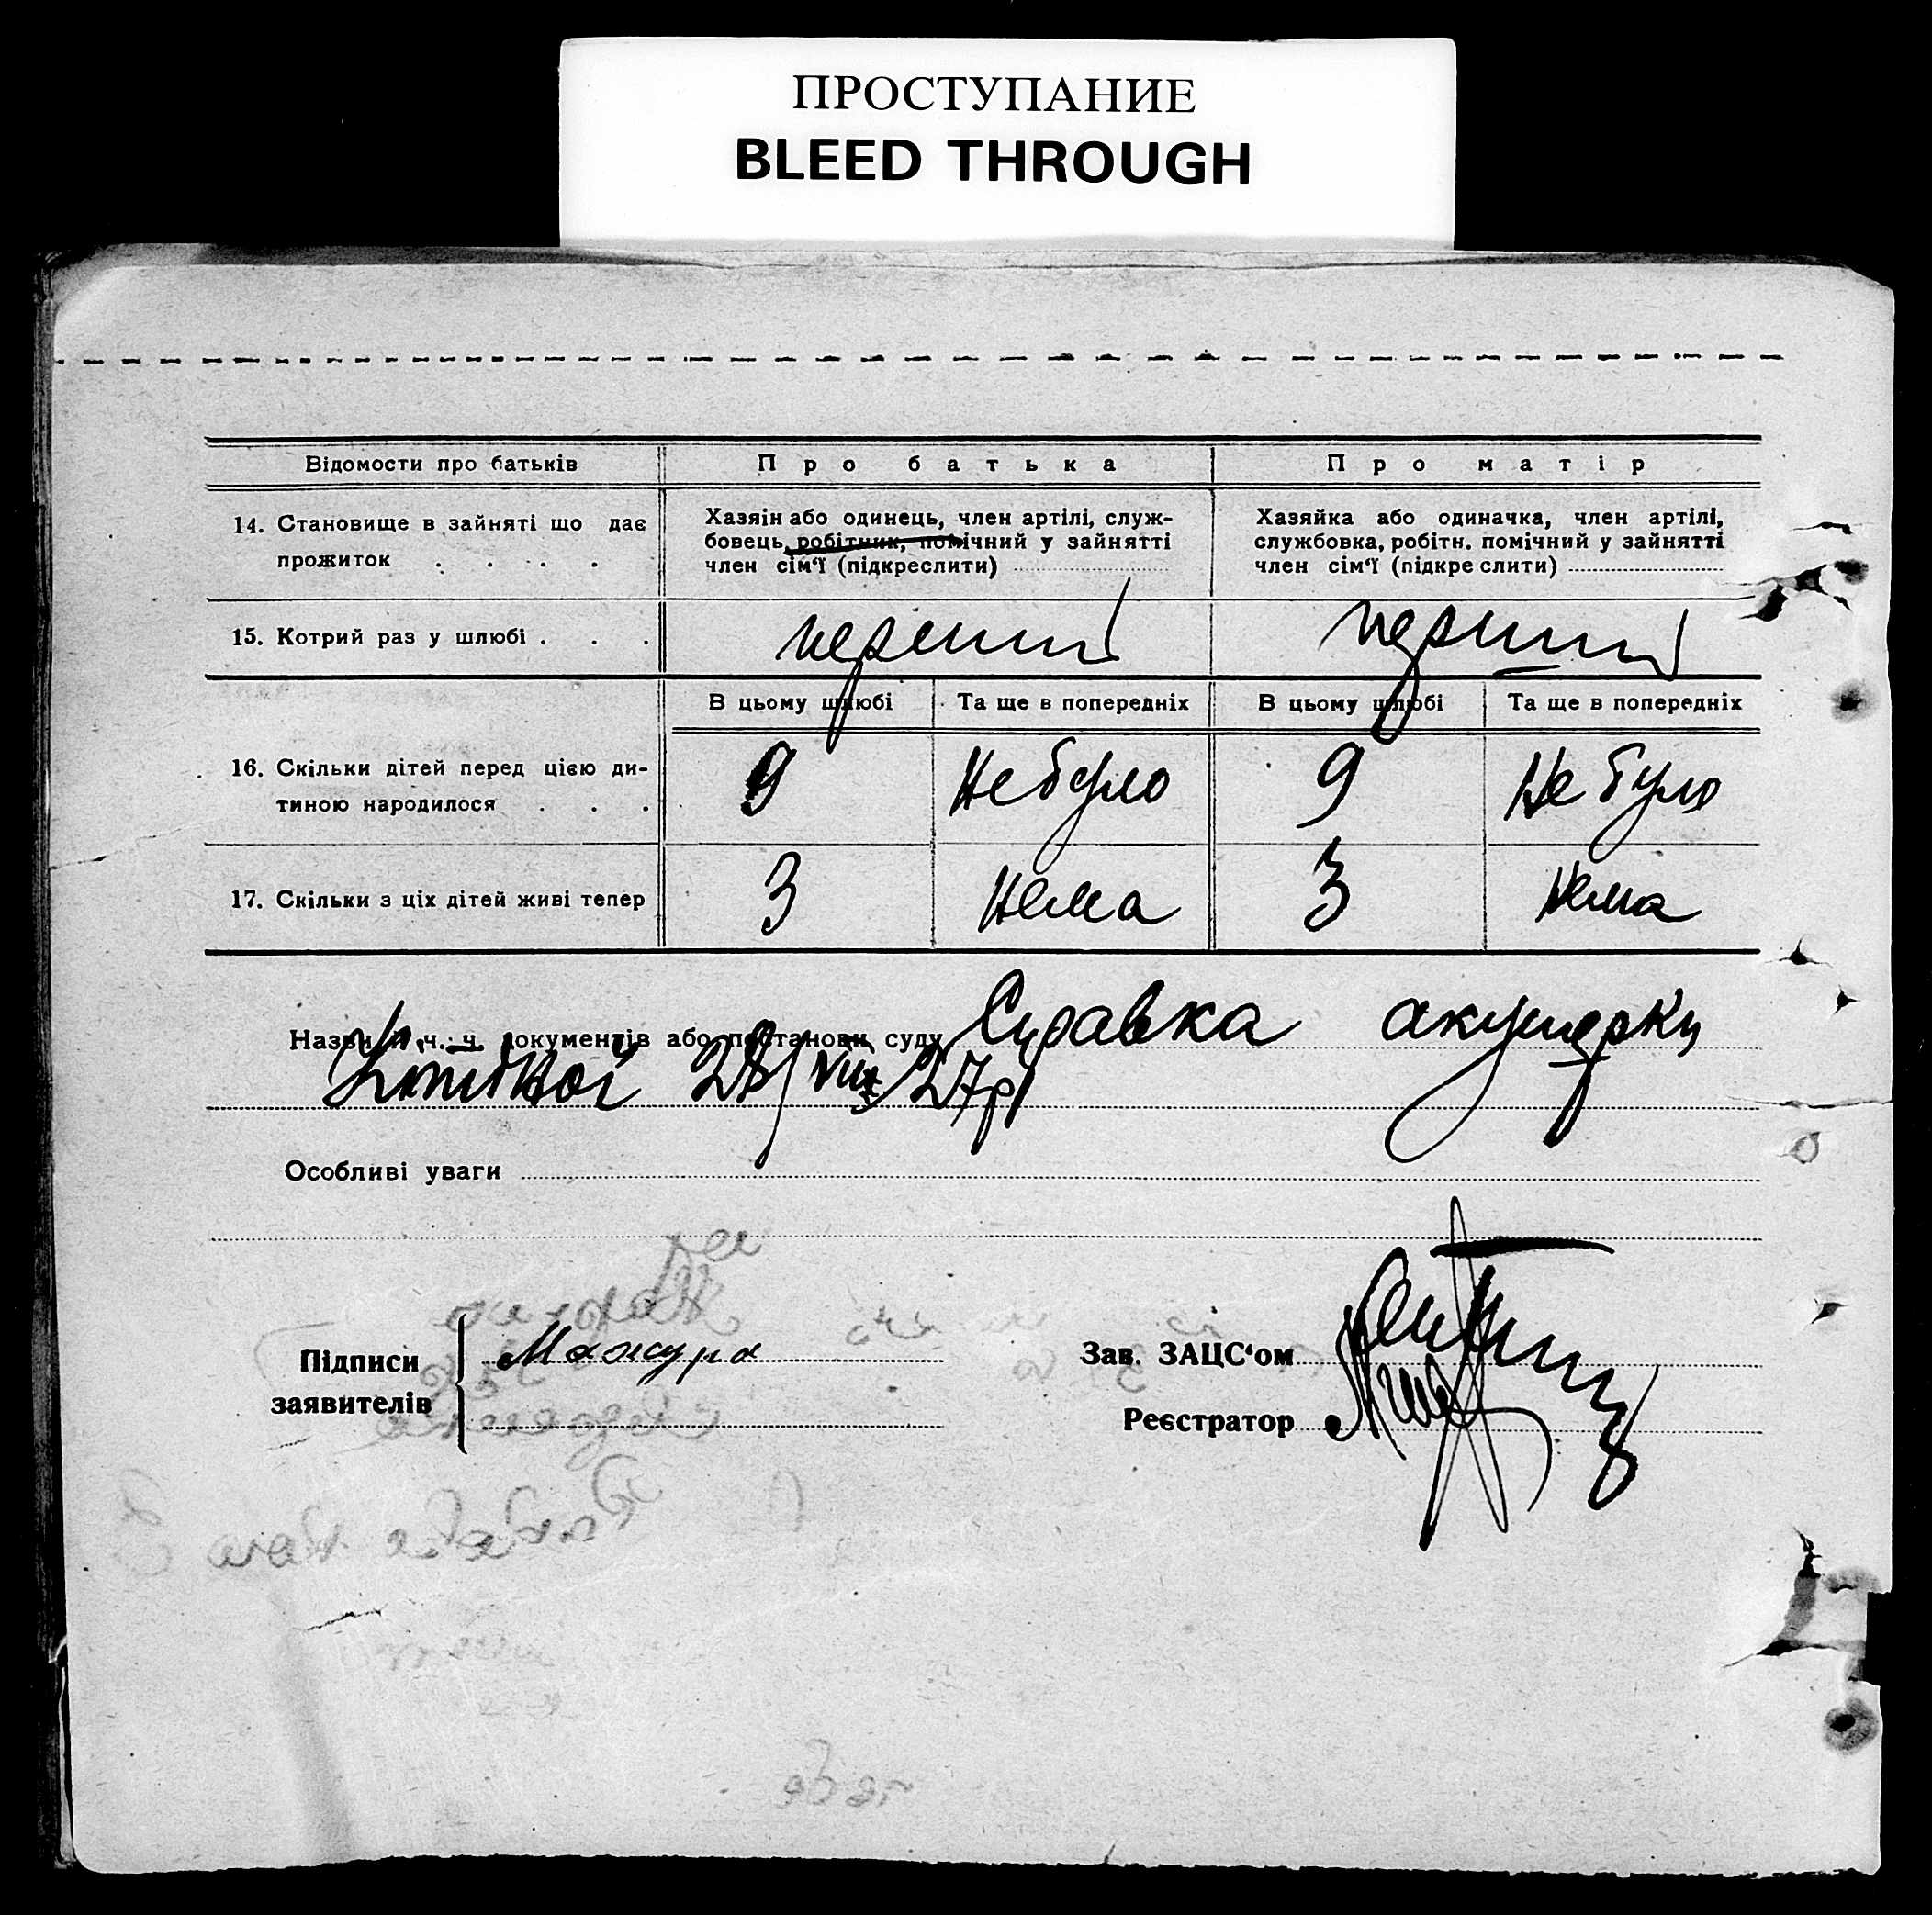 ПРОСТУПАНИЕ
BLEED THROUGH
Відомости про батьків Про батька Про матір
14. Становище в зайняті що дає
прожиток . . . .
Хазяїн або одинець, член артілі, служ-
бовець, робітник, помічний у зайнятті
член сім'ї (підкреслити)
Хазяйка або одиначка, член артілі,
службовка, робітн. помічний у зайнятті
член сім'ї (підкреслити)
15. Котрий раз у шлюбі . . . перший перший
В цьому шлюбі Та ще в попередніх В цьому шлюбі Та ще в попередніх
16. Скільки дітей перед цією ди-
тиною народилося . . .
9 Не було 9 Не було
17. Скільки з ціх дітей живі тепер 3 Нема 3 Нема
Назви й ч. ч. документів або постанови суду Справка акушерки
28/VIII 27р
Особливі уваги
Підписи
заявителів
Мажура
Зав. ЗАЦС'ом
Реєстратор